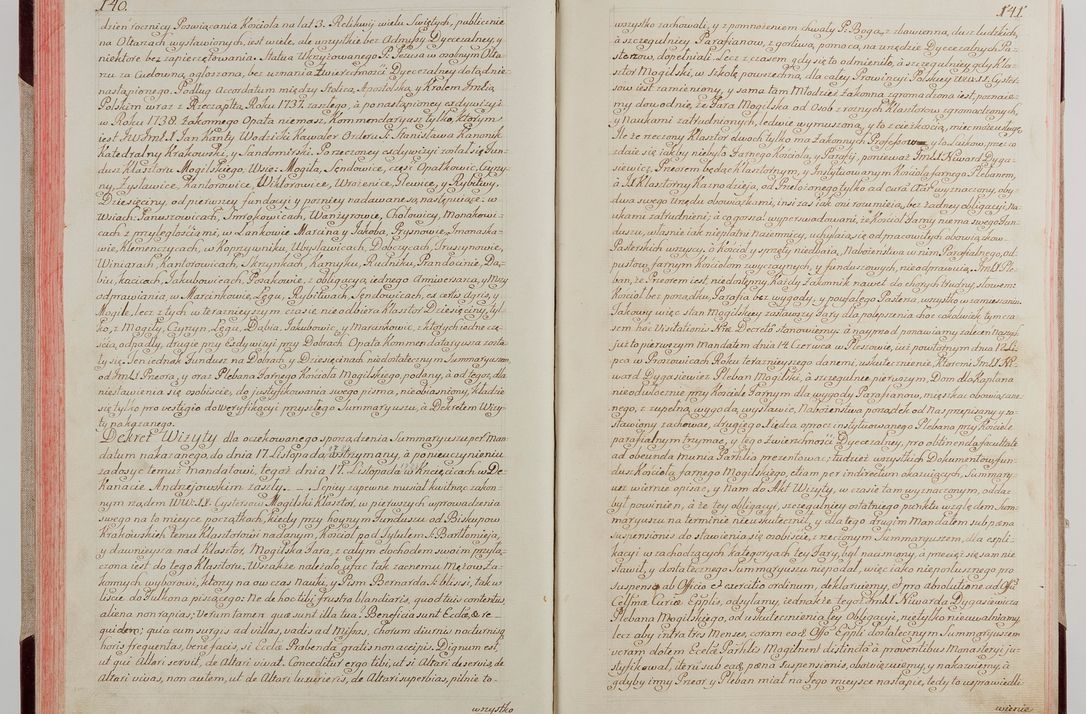 140.
dzień rocznicy Poswiącania Kościoła na lat 3. Relikwij wielu Swiętych, publicznie
na Ołtarzach wystawionych, iest wiele, ale wszystkie bez Admissy Dyecezalney, y
niektore bez zapieczętowania. Statua Ukrzyżowanego P. Jezusa w osobnym Ołta-
rzu za Cudowną ogłoszona, bez uznania Zwierzchności Dyecezalney dotąd nie-
nastąpionego. Podług Accordatum między Stolicą Apostolską, y Krolem Jmcią
Polskim wraz z Rzecząpltą Roku 1737. zaszłego, a po nastąpioney exdywizyi
w Roku 1738. Zakonnego Opata niemasz, Kommendaryusz tylko, ktorym
iest JW Jmć X. Jan Kanty Wodzicki Kawaler Orderu S. Stanisława Kanonik
Katedralny Krakowski, y Sandomirski. Po rzeczoney exdywizyi został się Fun-
dusz Klasztoru Mogilskiego, Wsie: Mogiła, Zendowice, część Opatkowic, Czyzy-
ny, Zysławice, Kantorowice, Wiktorowice, Wrożenice, Glewice, y Rybitwy.
Dziesięciny, od pierwszy fundacyi y pozniey nadawane są następuiące: w
Wsiach Januszowicach, Smrokowicach, Wanzyrowie, Cholowicy, Monakowi-
cach z przyległościami, w Łankowie Marcina y Jakoba, Prysnowie, Imonaska-
wie, Klemenczycach, w Koprzywniku, Ubysławicach, Dobczycach, Trusynowie,
Winiarach, Kantorowicach, Skrzynkach, Kamyku, Rudniku, Prandocinie, Dą-
biu, Kacicach, Jakubowicach, Posąkowie, z obligacyą iednego Anniwersarza, y Mszy
odprawiania, w Marcinkowie, Łęgu, Rybitwach, Zendowicach, ex certis Agris, y
Mogile, lecz z tych w teraznieyszym czasie nieodbiera Klasztor Dziesięciny, tyl-
ko, z Mogiły, Czyzyn, Łęgu, Dąbia, Jakubowic, y Marcinkowic, z ktorych iedne czę-
ścią, odpadły, drugie przy Exdywizyi przy Dobrach Opata Kommendataryusza zosta-
ły się. Ten iednak Fundusz na Dobrach y Dziesięcinach niedostatecznym Summaryuszem,
od Jmć X. Przeora, y oraz Plebana Farnego Kościoła Mogilskiego, podany, a od tegoż, dla
niestawienia się osobiście, do justyfikowania swego pisma, nieobiaśniony, kładzie
się tylko pro vestigio do weryfikacyi przyszłego Summaryuszu, a Dekretem Wizy-
ty nakazanego.
Dekret Wizyty dla oczekowanego sporządzenia Summaryuszu per Man-
datum nakazanego, do dnia 17. Listopada wstrzymany, a po nieuczynieniu
zadosyć temuż Mandatowi, tegoż dnia 17. Listopada w Krzęcicach w De-
kanacie Andrzejowskim zaszły. - - - Lepiey zapewne musiał kwitnąć zakon-
nym rządem WW. XX. Cystersow Mogilski Klasztor, w pierwszych wprowadzenia
swego na to mieysce początkach, kiedy przy hoynym Funduszu od Biskupow
Krakowskich temu Klasztorowi nadanym, Kościoł pod Tytułem S. Bartłomieja,
y dawnieysza nad Klasztor, Mogilska Fara, z całym dochodem swoim przyłą-
czona iest do tego Klasztoru. Wszakże należało ufać tak zacnemu Mężow Za-
konnych wyborowi, ktorzy na ow czas nauki, y Psm Bernarda S. bliscsi, tak w
liscie do Fulkona piszącego: Ne de hoc tibi frustra blandiaris, quod tuis contentus,
aliena non rapias; Verum tamen quæ sunt illa tua? Beneficia sunt Eccles. & re
quidem; quia cum surgis ad vigilias, vadis ad Missas, Chorum diurnis nocturnisq
horis frequentas, bene facis, si Ecclæ Prabenda gratis non accipis. Dignum est,
ut qui Altari servit, de Altari vivat. Conceditur ergo tibi, ut si Altari deservis, de
Altari vivas, non autem, ut de Altari luxurieris, de Altari superbias, pilnie to-
wszystko
141.
wszystko zachowali, y z pomnożeniem chwały P. Boga, z zbawienną dusz ludzkich,
a szczegulniey Parafianow, z gorliwą pomocą, na urzędzie Dyecezalnych Pa-
sterzow, dopełniali. Lecz z czasem gdy się to odmieniło, a szczegulniey gdy Kla-
sztor Mogilski, w szkołę powszechną, dla całey Prowincyi Polskiey WW. XX. Cyster-
sow iest zamieniony, y sama tam Młodzież zakonna zgromadzona iest, poznaie-
my dowodnie, że Fara Mogilska od Osob z rożnych Klasztorow zgromadzonych,
y Naukami zatrudnionych, ledwie wymuszoną, y to z ciężkością, mieć może usługę.
Ile że rzeczony Klasztor dwoch tylko ma Zakonnych Professow, y to Laikow, przeco
zdaie się iakby niebyło Farnego Kościoła, y Parafij, ponieważ Jmć X. Niward Dyga-
siewicz, Przeorem będąc Klasztornym, y Instytuowanym Kościoła farnego Plebanem,
a X. Klasztorny Kaznodzieja, od Przełożonego tylko ad curam Aiar wyznaczony, oby-
dwa swego Urzędu obowiązkami, insi zaś iak oni rozumieią, bez żadney obligacyi, Na-
ukami zatrudnieni; a co gorsza! wyperswadowani, że Kościoł Farny niema swego Fun-
duszu, właśnie iak niepłatni naiemnicy, uchylaią się od pracowitych obowiązkow
Pasterskich wszyscy, o Kościoł y sprzęty niedbaią, Nabożeństwa w nim Parafialnego, od-
pustow, farnym Kościołom zwyczaynych, y funduszowych, nieodprawuią. Jmć X. Ple-
ban, że Przeorem iest, niedołężny, Każdy Zakonnik nawet do chorych trudny, słowem:
Kościoł bez porządku, Parafia bez wygody, y poufałego Pasterza, wszystko w zamieszaniu.
Takowy więc stan Mogilskiey zastawszy Fary, dla polepszenia choć cokolwiek tymcza-
sem hoc Visitationis Nræ Decreto stanowiemy: a naypred ponawiamy zalecenia nasze,
już to pierwszym Mandatem dnia 14. Czerwca w Pleszowie, już powtornym dnia 12. Li-
pca w Proszowicach Roku teraznieyszego danemi, uskutecznienie, ktoremi Jmć X. Ni-
ward Dygasiewicz Pleban Mogilski, a szczegulnie pierwszym, Dom dla Kapłana
nieodwłocznie przy Kościele Farnym dla wygody Parafianow, mieszkać obowiązane-
nego, z zupełną wygodą, wystawić, Nabożeństwa porządek od Nas przepisany y zo-
stawiony zachować, drugiego Xiędza opocz instytuowanego Plebana przy Kościele
parafialnym trzymać, y tego Zwierzchności Dyecezalney, pro obtinenda facultate
ad obeunda munia Parhlia prezentować; tudzież wszystkich Dokumentow fun-
duszu Kościoła farnego Mogilskiego, etiam per indirectum okazuiących, Summary-
usz wiernie opisać, y Nam do Akt Wizyty, w czasie tam wyznaczonym, oddać
był powinien, a że tey obligacyi, szczegulniey ostatniego punktu względem Sum-
maryuszu na terminie nieuskutecznił, y dla tego drugim Mandatem sub pæna
suspensionis do stawienia się osobiście, z rzeczonym Summaryuszem, dla expli-
kacyi w zachodzących kategoryach tey Fary, był naciśniony, a przecięż się sam nie
stawił, y dostatecznego Summaryuszu niepodał, więc iako nieposłusznego pro
suspenso ab Officio et exercitio ordinum, deklaruiemy, & pro absolutione ad Offm
Celssmæ Curiæ Epplis, odsyłamy, iednakże tegoż Jmć X. Niwarda Dygasiewicza
Plebana Mogilskiego, od uskutecznienia tey Obligacyi, nietylko nieuwalniamy,
lecz aby intra tres Menses, coram eod. Offo Eppli dostatecznym Summaryuszem
veram dotem Ecclæ Parhlis Mogilnen: distinctâ à proventibus Monasteryi ju-
styfikował, iterū sub eadē pæna Suspensionis, obowięzuiemy, y nakazuiemy, a
gdyby inny Przeor y Pleban miał na Jego mieysce nastąpić, tedy to usprawiedli-
wienie